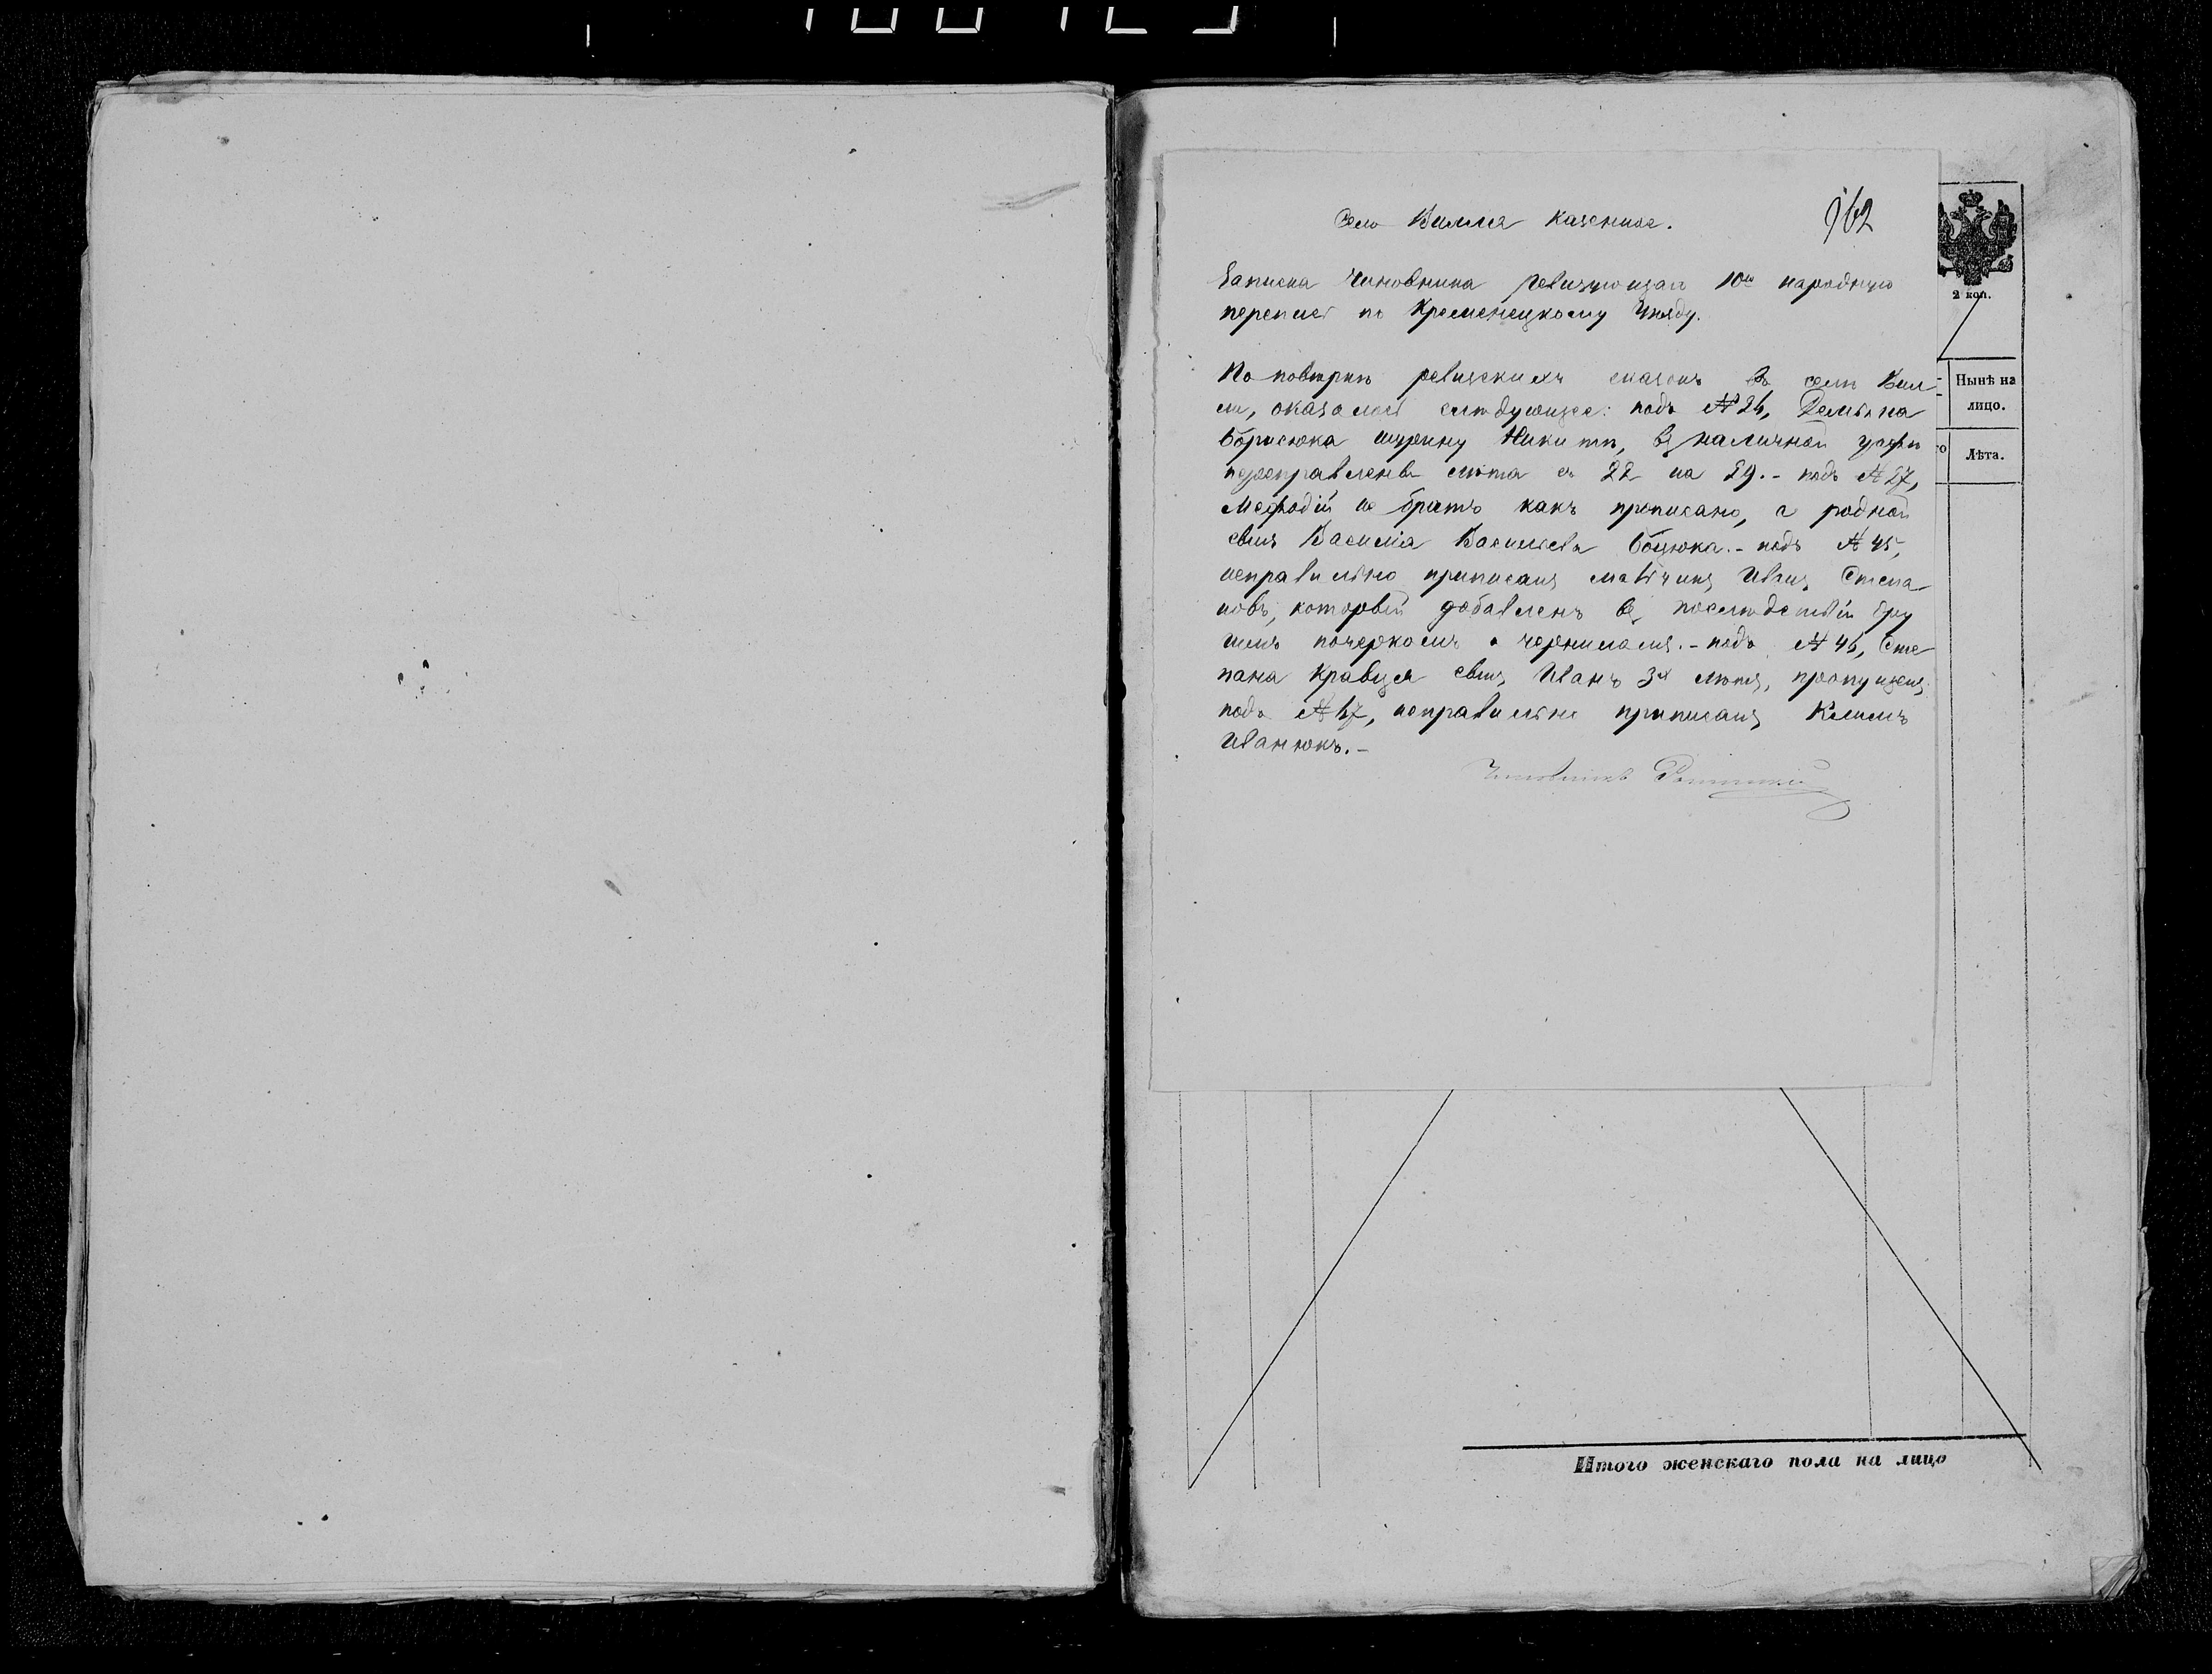 Село Виллія казенное.
162
Записка Чиновника ревизующаго 10ю народную
перепись по Кременецкому Уѣзду.
По повѣркѣ ревизскихъ сказокъ въ селѣ Вил-
ліи, оказалось слѣдующее: подъ № 26, Демьяна
Борисюка шурину Никитѣ, въ наличной графѣ
переправлены лѣта съ 22 на 29. - подъ № 27,
Мефодій не братъ какъ прописано, а родной
сынъ Василія Васильева Боцюка. - подъ № 45,
неправильно приписанъ мальчикъ Иванъ Степа
новъ, который добавленъ въ послѣдствіи дру
гимъ почеркомъ и чернилами. - подъ № 46, Сте
пана Кравця сынъ Иванъ 3х лѣтъ, пропущенъ
подъ № 67, неправильно приписанъ Климъ
Иванюкъ. -
Чиновникъ
2 коп.
Нынѣ на
лицо.
Лѣта.
Итого женскаго пола на лицо